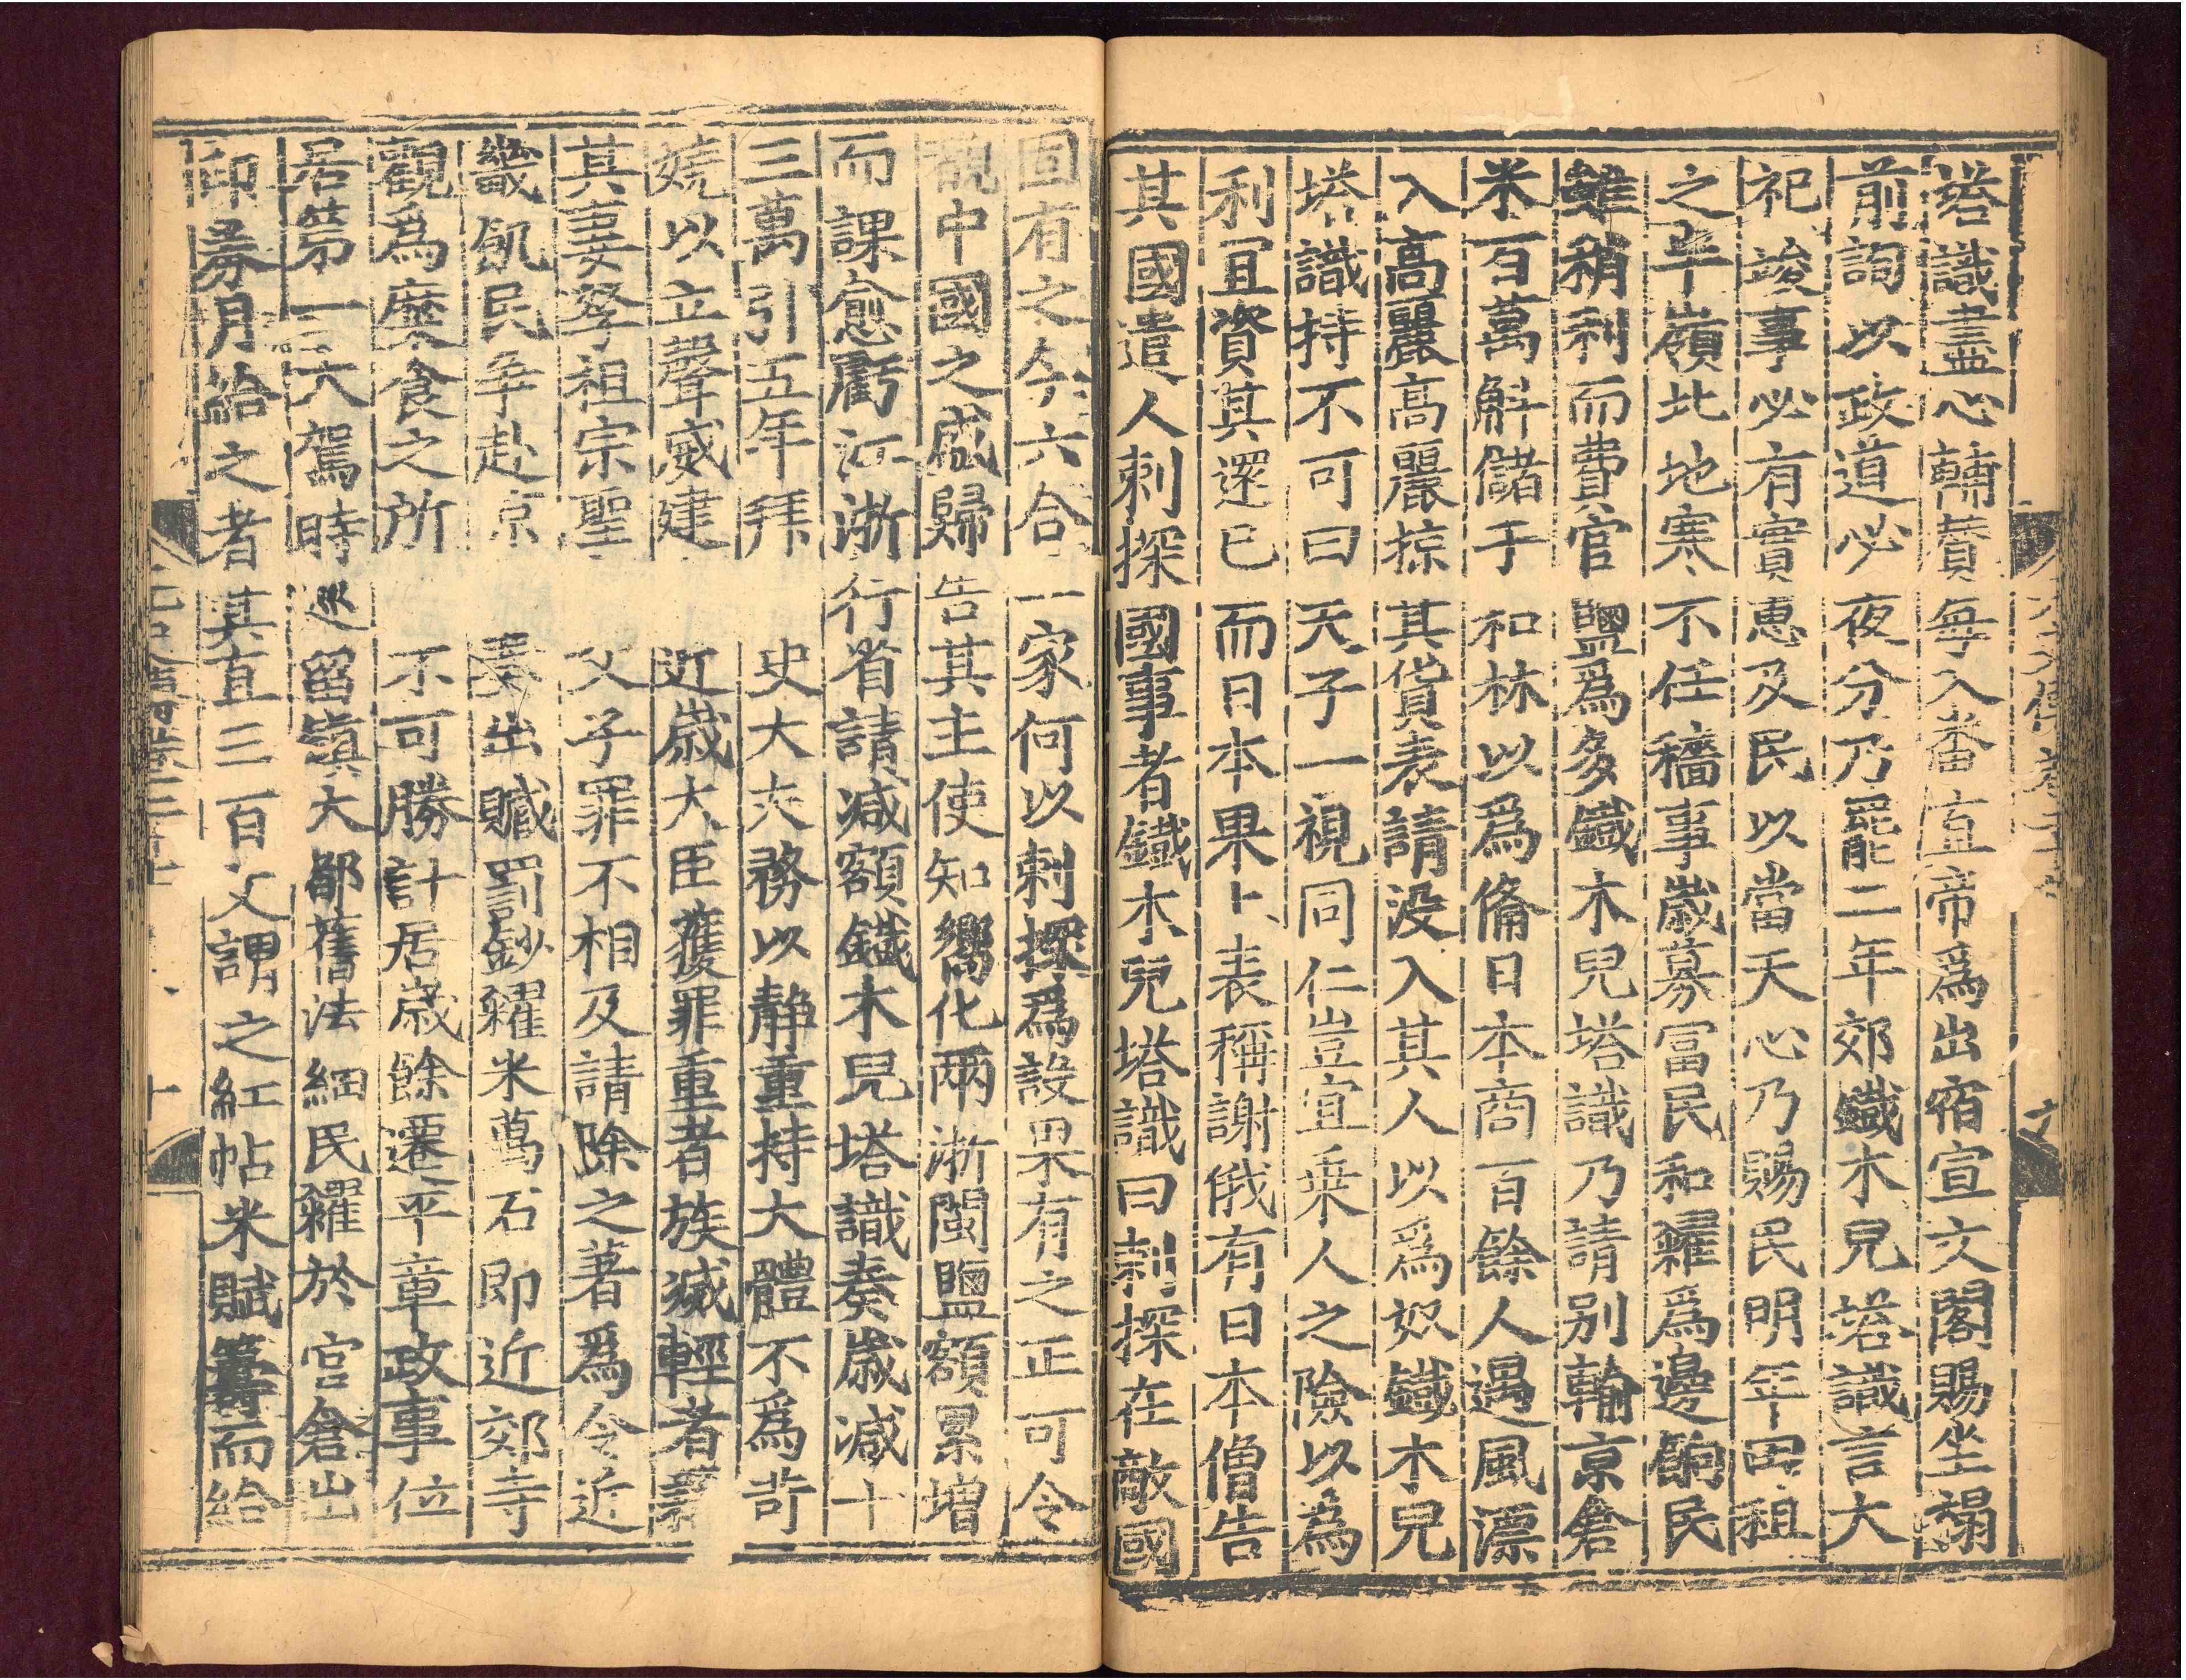 塔識盡心輔賛每入番直帝爲出宿宣文閣賜坐榻
前詢以政道必夜分乃罷二年郊鐵木兒塔識言大
祀竣事必有實惠及民以當天心乃賜民明年田租
之半嶺北地寒不任穡事歲募富民和糴爲邊餉民
雖稍利而費官鹽爲多鐵木兒塔識乃請别輸京倉
米百萬斛儲于和林以爲備日本商百餘人遇風漂
入高麗高麗掠其貨表請没入其人以爲奴鐵木兒
塔識持不可曰天子一視同仁豈宜乗人之險以為
利宜資其還已而日本果上表稱謝俄有日本僧告
其國遣人刺探國事者鐵木兒塔識曰刺探在敵國
固有之今六合一家何以刺探爲設果有之正可令
觀中國之盛歸告其主使知嚮化兩浙閩鹽額累增
而課愈虧江浙行省請减額鐵木兒塔識奏歲减十
三萬引五年拜史大夫務以静重持大體不爲苛
嬈以立聲威建近歲大臣獲罪重者族滅輕者籍
其妻孥祖宗聖父子罪不相及請除之著爲令近
畿飢民争赴京奏出贓罰鈔糴米萬石即近郊寺
觀爲糜食之所不可勝計居歲餘遷平章政事位
居第一大駕時巡留鎮大都舊法細民糴於官倉出
印劵月給之者其直三百文謂之紅帖米賦籌而給